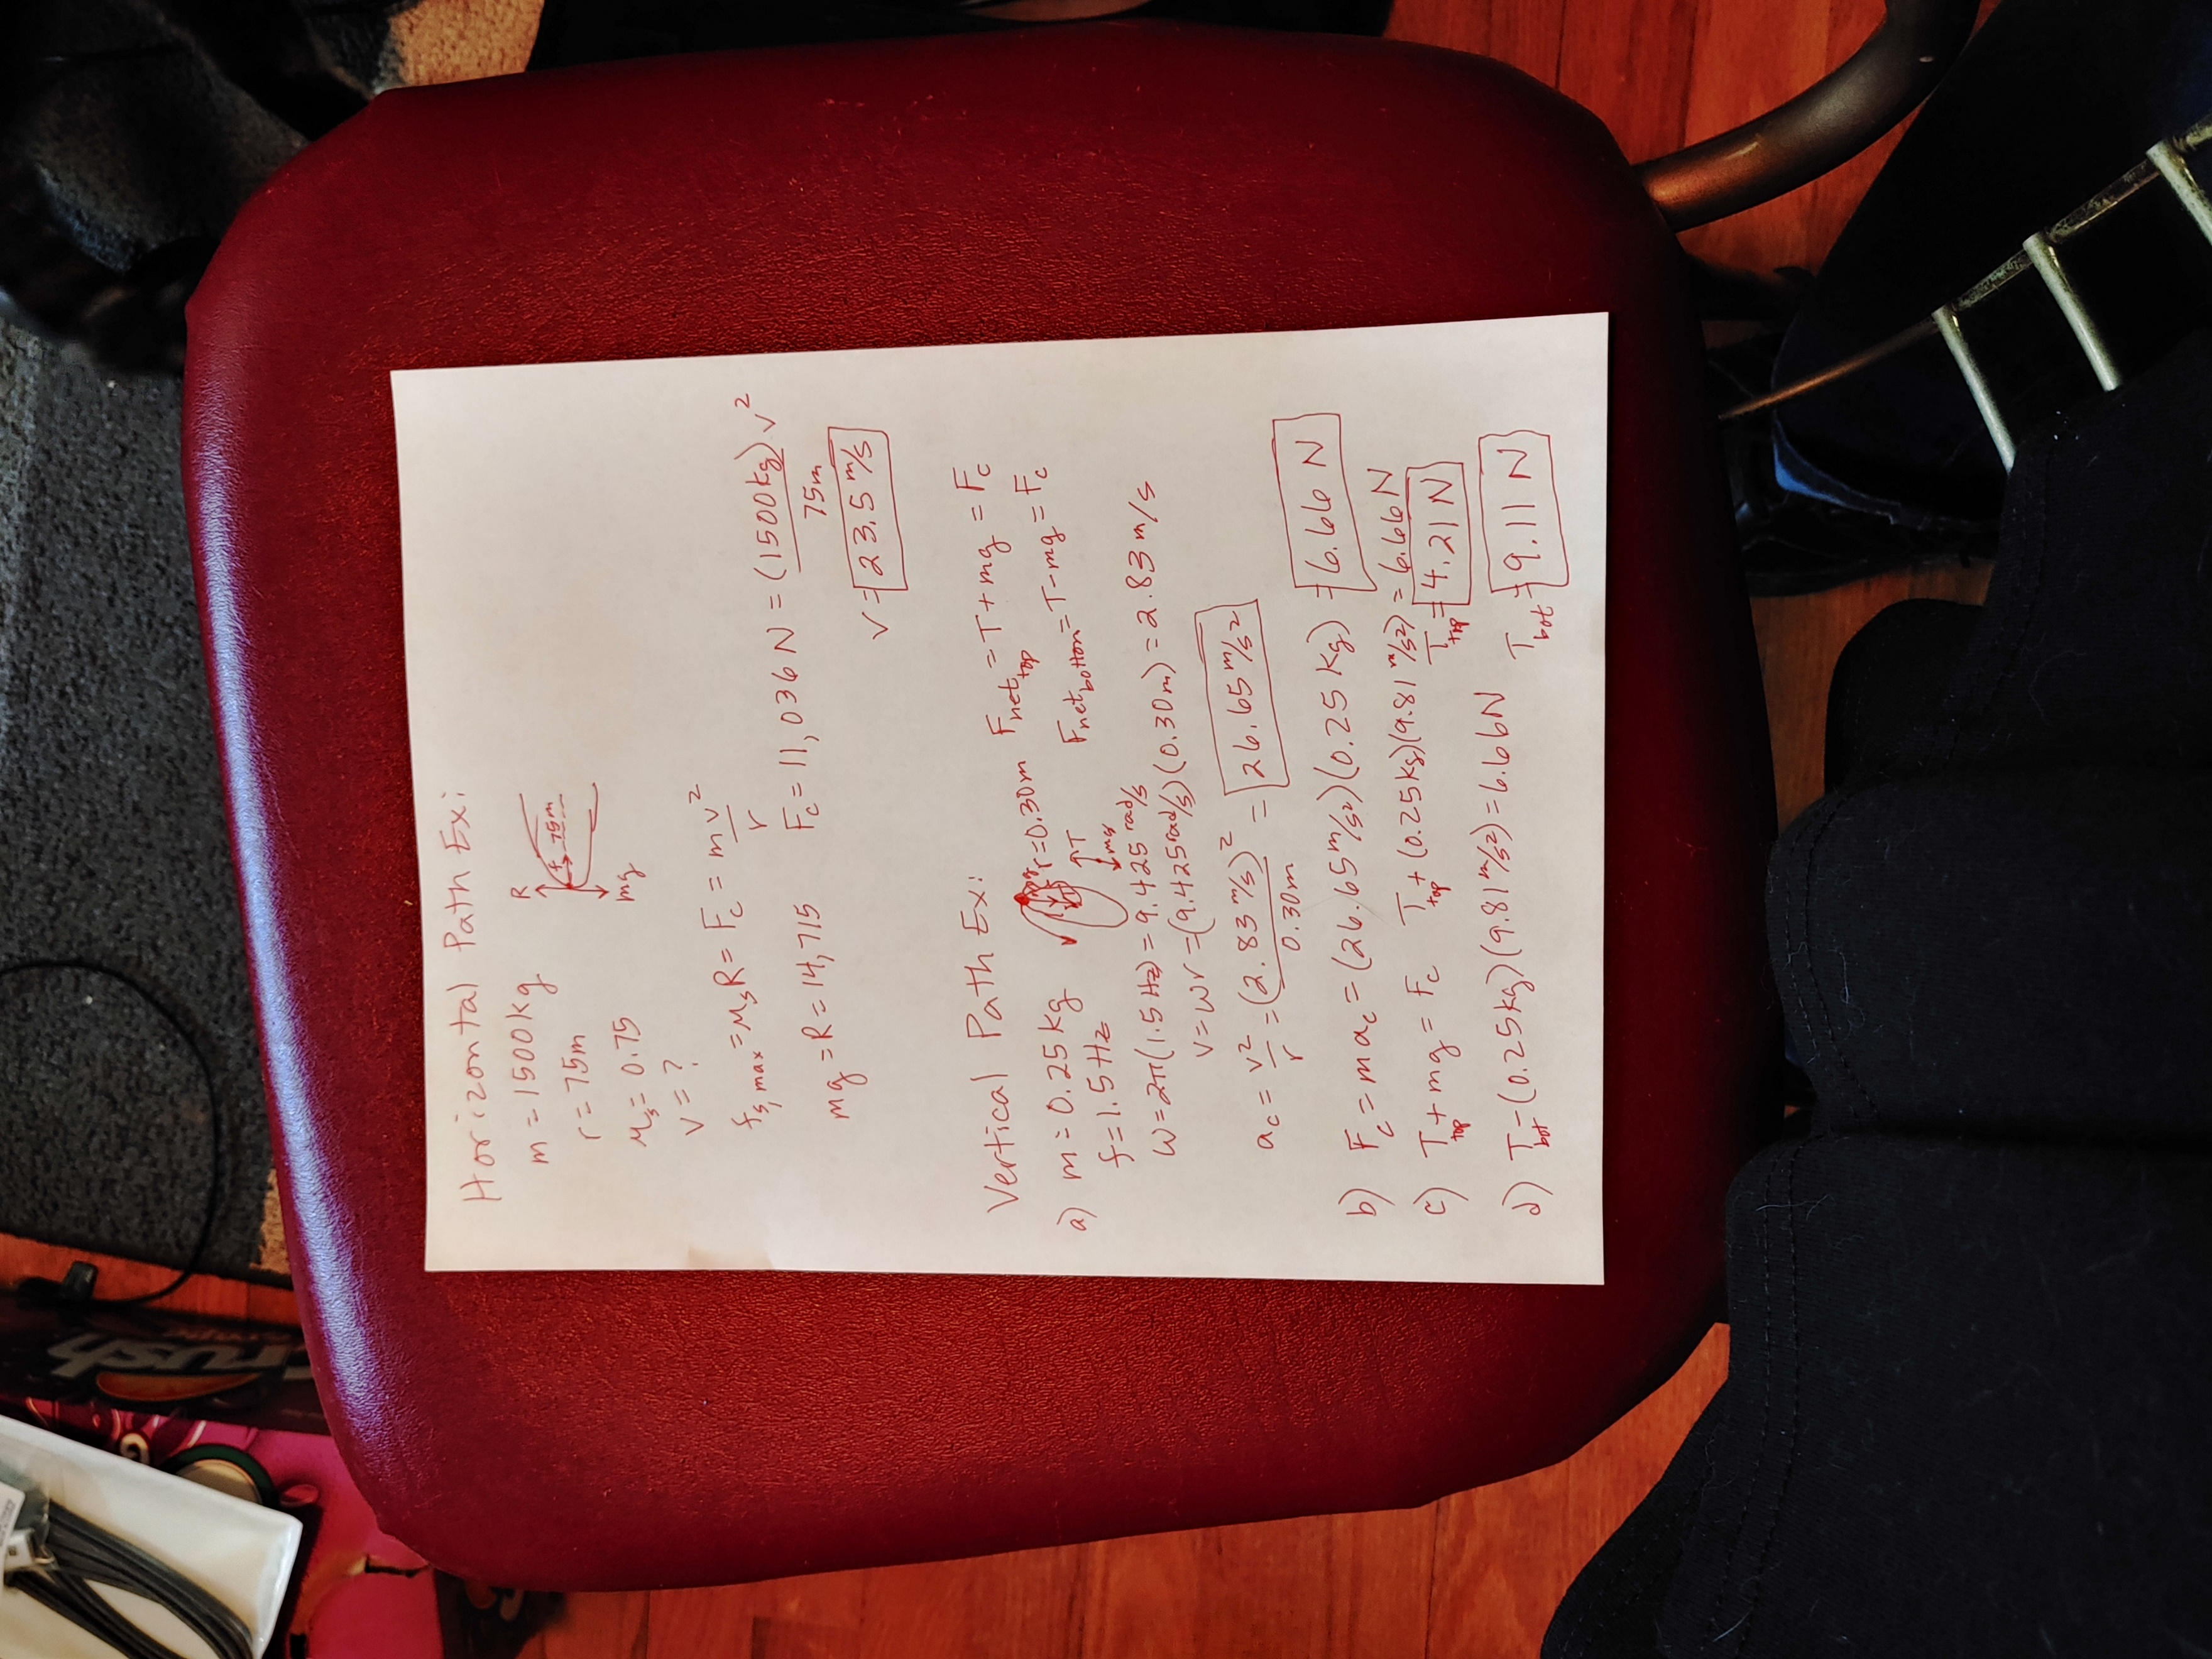 Horizontal Path Ex:
m = 1500kg
R
75m
mg
r = 75m
μs = 0.75
v = ?
fs,max = μsR = Fc = mv²/r
mg = R = 14,715 Fc = 11,036 N = (1500kg)v²/75m
v = 23.5 m/s
Vertical Path Ex:
a) m = 0.25 kg r = 0.30m Fnet top = T + mg = Fc
f = 1.5 Hz T mg Fnet bottom = T - mg = Fc
ω = 2π(1.5 Hz) = 9.425 rad/s
v = ωr = (9.425 rad/s)(0.30m) = 2.83 m/s
ac = v²/r = (2.83 m/s)²/0.30m = 26.65 m/s²
b) Fc = mac = (26.65 m/s²)(0.25 kg) = 6.66 N
c) Ttop + mg = Fc Ttop + (0.25kg)(9.81 m/s²) = 6.66N
Ttop = 4.21 N
d) Tbot - (0.25kg)(9.81 m/s²) = 6.66N
Tbot = 9.11 N
rush